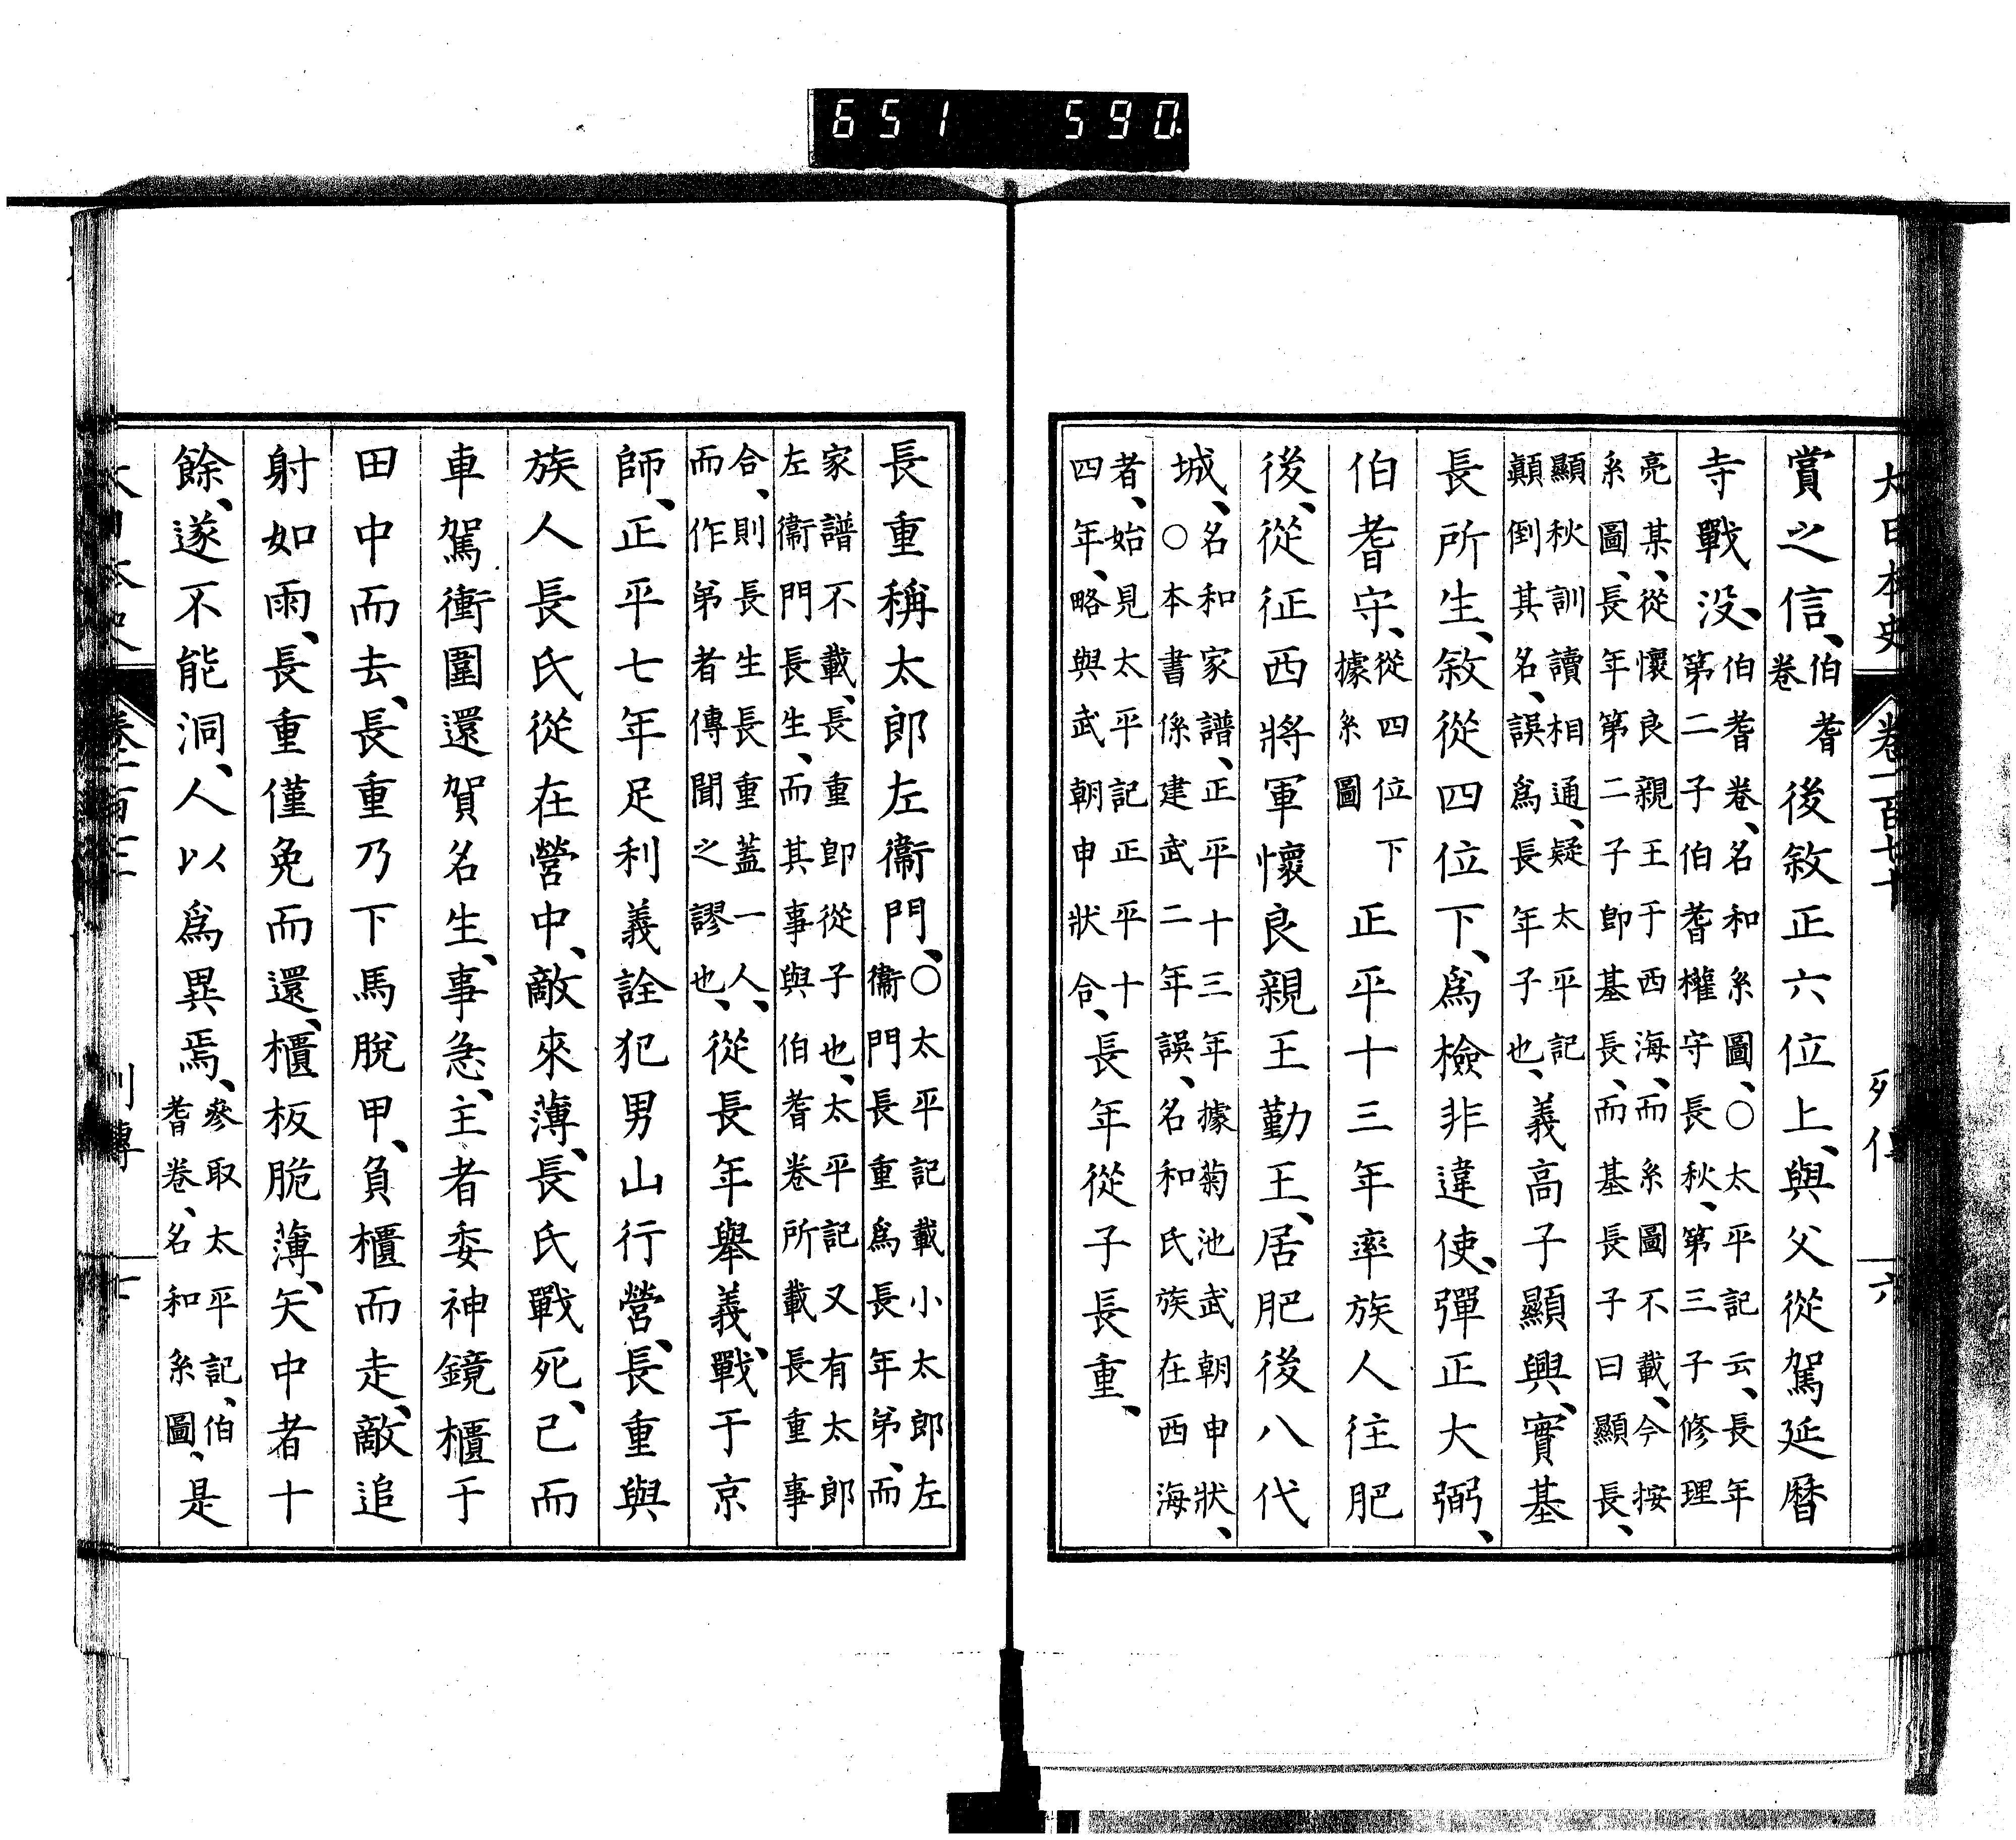 651 590
大日本史 卷一百七十 列傳 六
賞之信、伯耆卷後敘正六位上、與父從駕延曆
寺戰没、伯耆卷、名和系圖、○太平記云、長年第二子伯耆權守長秋、第三子修理
亮某、從懷良親王于西海、而系圖不載、今按系圖、長年第二子卽基長、而基長子曰顯長、
顯秋訓讀相通、疑太平記顛倒其名、誤爲長年子也、義高子顯興、實基
長所生、敘從四位下、爲檢非違使、彈正大弼、
伯耆守、從四位下據系圖正平十三年率族人往肥
後、從征西將軍懷良親王勤王、居肥後八代
城、名和家譜、正平十三年據菊池武朝申狀、○本書係建武二年誤、名和氏族在西海
者、始見太平記正平十四年、略與武朝申狀合、長年從子長重、
長重稱太郎左衞門、○太平記載小太郎左衞門長重爲長年第、而
家譜不載、長重卽從子也、太平記又有太郎左衞門長生、而其事與伯耆卷所載長重事
合、則長生長重蓋一人、而作弟者傳聞之謬也、從長年舉義、戰于京
師、正平七年足利義詮犯男山行營、長重與
族人長氏從在營中、敵來薄、長氏戰死、已而
車駕衝圍還賀名生、事急、主者委神鏡櫃于
田中而去、長重乃下馬脫甲、負櫃而走、敵追
射如雨、長重僅免而還、櫃板脆薄、矢中者十
餘、遂不能洞、人以爲異焉、參取太平記、伯耆卷、名和系圖、是